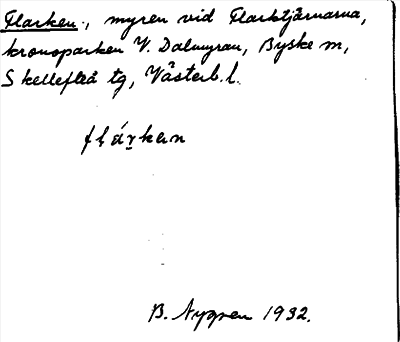 Flarken., myren vid Flarktjärnarna,
kronoparken V. Dalmyran, Byske m,
Skellefteå tg, Västerb. l.
flárkan
B. Nygren 1932.